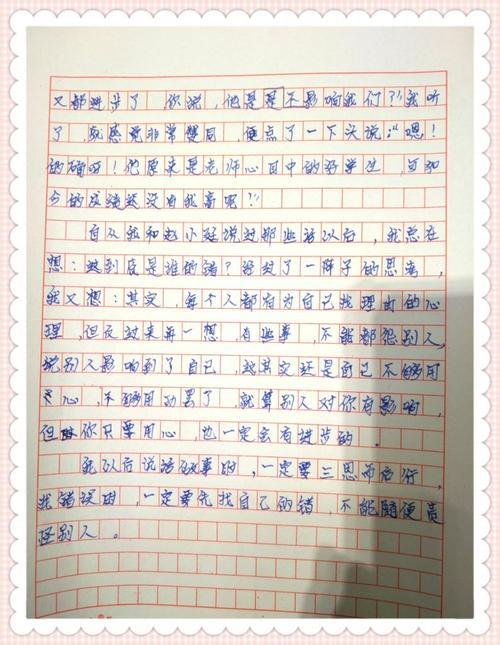 又都进步了 你说，他是是不影响我们？”我听
了，就感觉非常赞同，便点了一下头说：“嗯！
的确啊！他原来是老师心目中的好学生，可如
今的成绩还没有我高呢？”
自从我和赵小廷说过那些话以后，我总在
想：这到底是谁的错？经过了一阵子的思考，
我又想：其实，每个人都有为自己找理由的心
理，但反过来再一想，有些事，不能都怨别人，
说别人影响到了自己，其实还是自己不够用
心，不够用功罢了，就算别人对你有影响，
但你只要用心，也一定会有进步的。
我以后说话做事的，一定要三思而后行，
找错误时，一定要先找自己的错，不能随便责
怪别人。